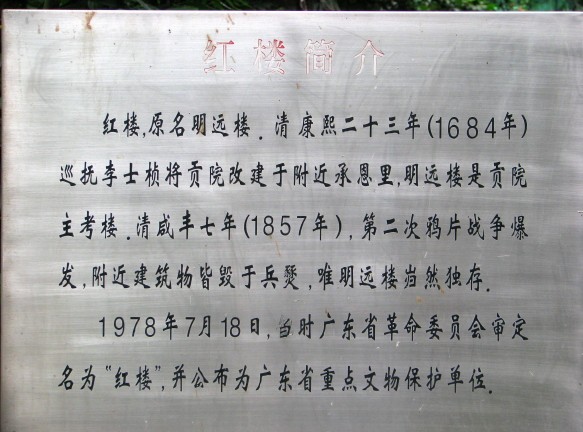 红楼简介
红楼,原名明远楼.清康熙二十三年(1684年)
巡抚李士桢将贡院改建于附近承恩里,明远楼是贡院
主考楼.清咸丰七年(1857年),第二次鸦片战争爆
发,附近建筑物皆毁于兵燹,唯明远楼岿然独存.
1978年7月18日,当时广东省革命委员会审定
名为“红楼”,并公布为广东省重点文物保护单位.